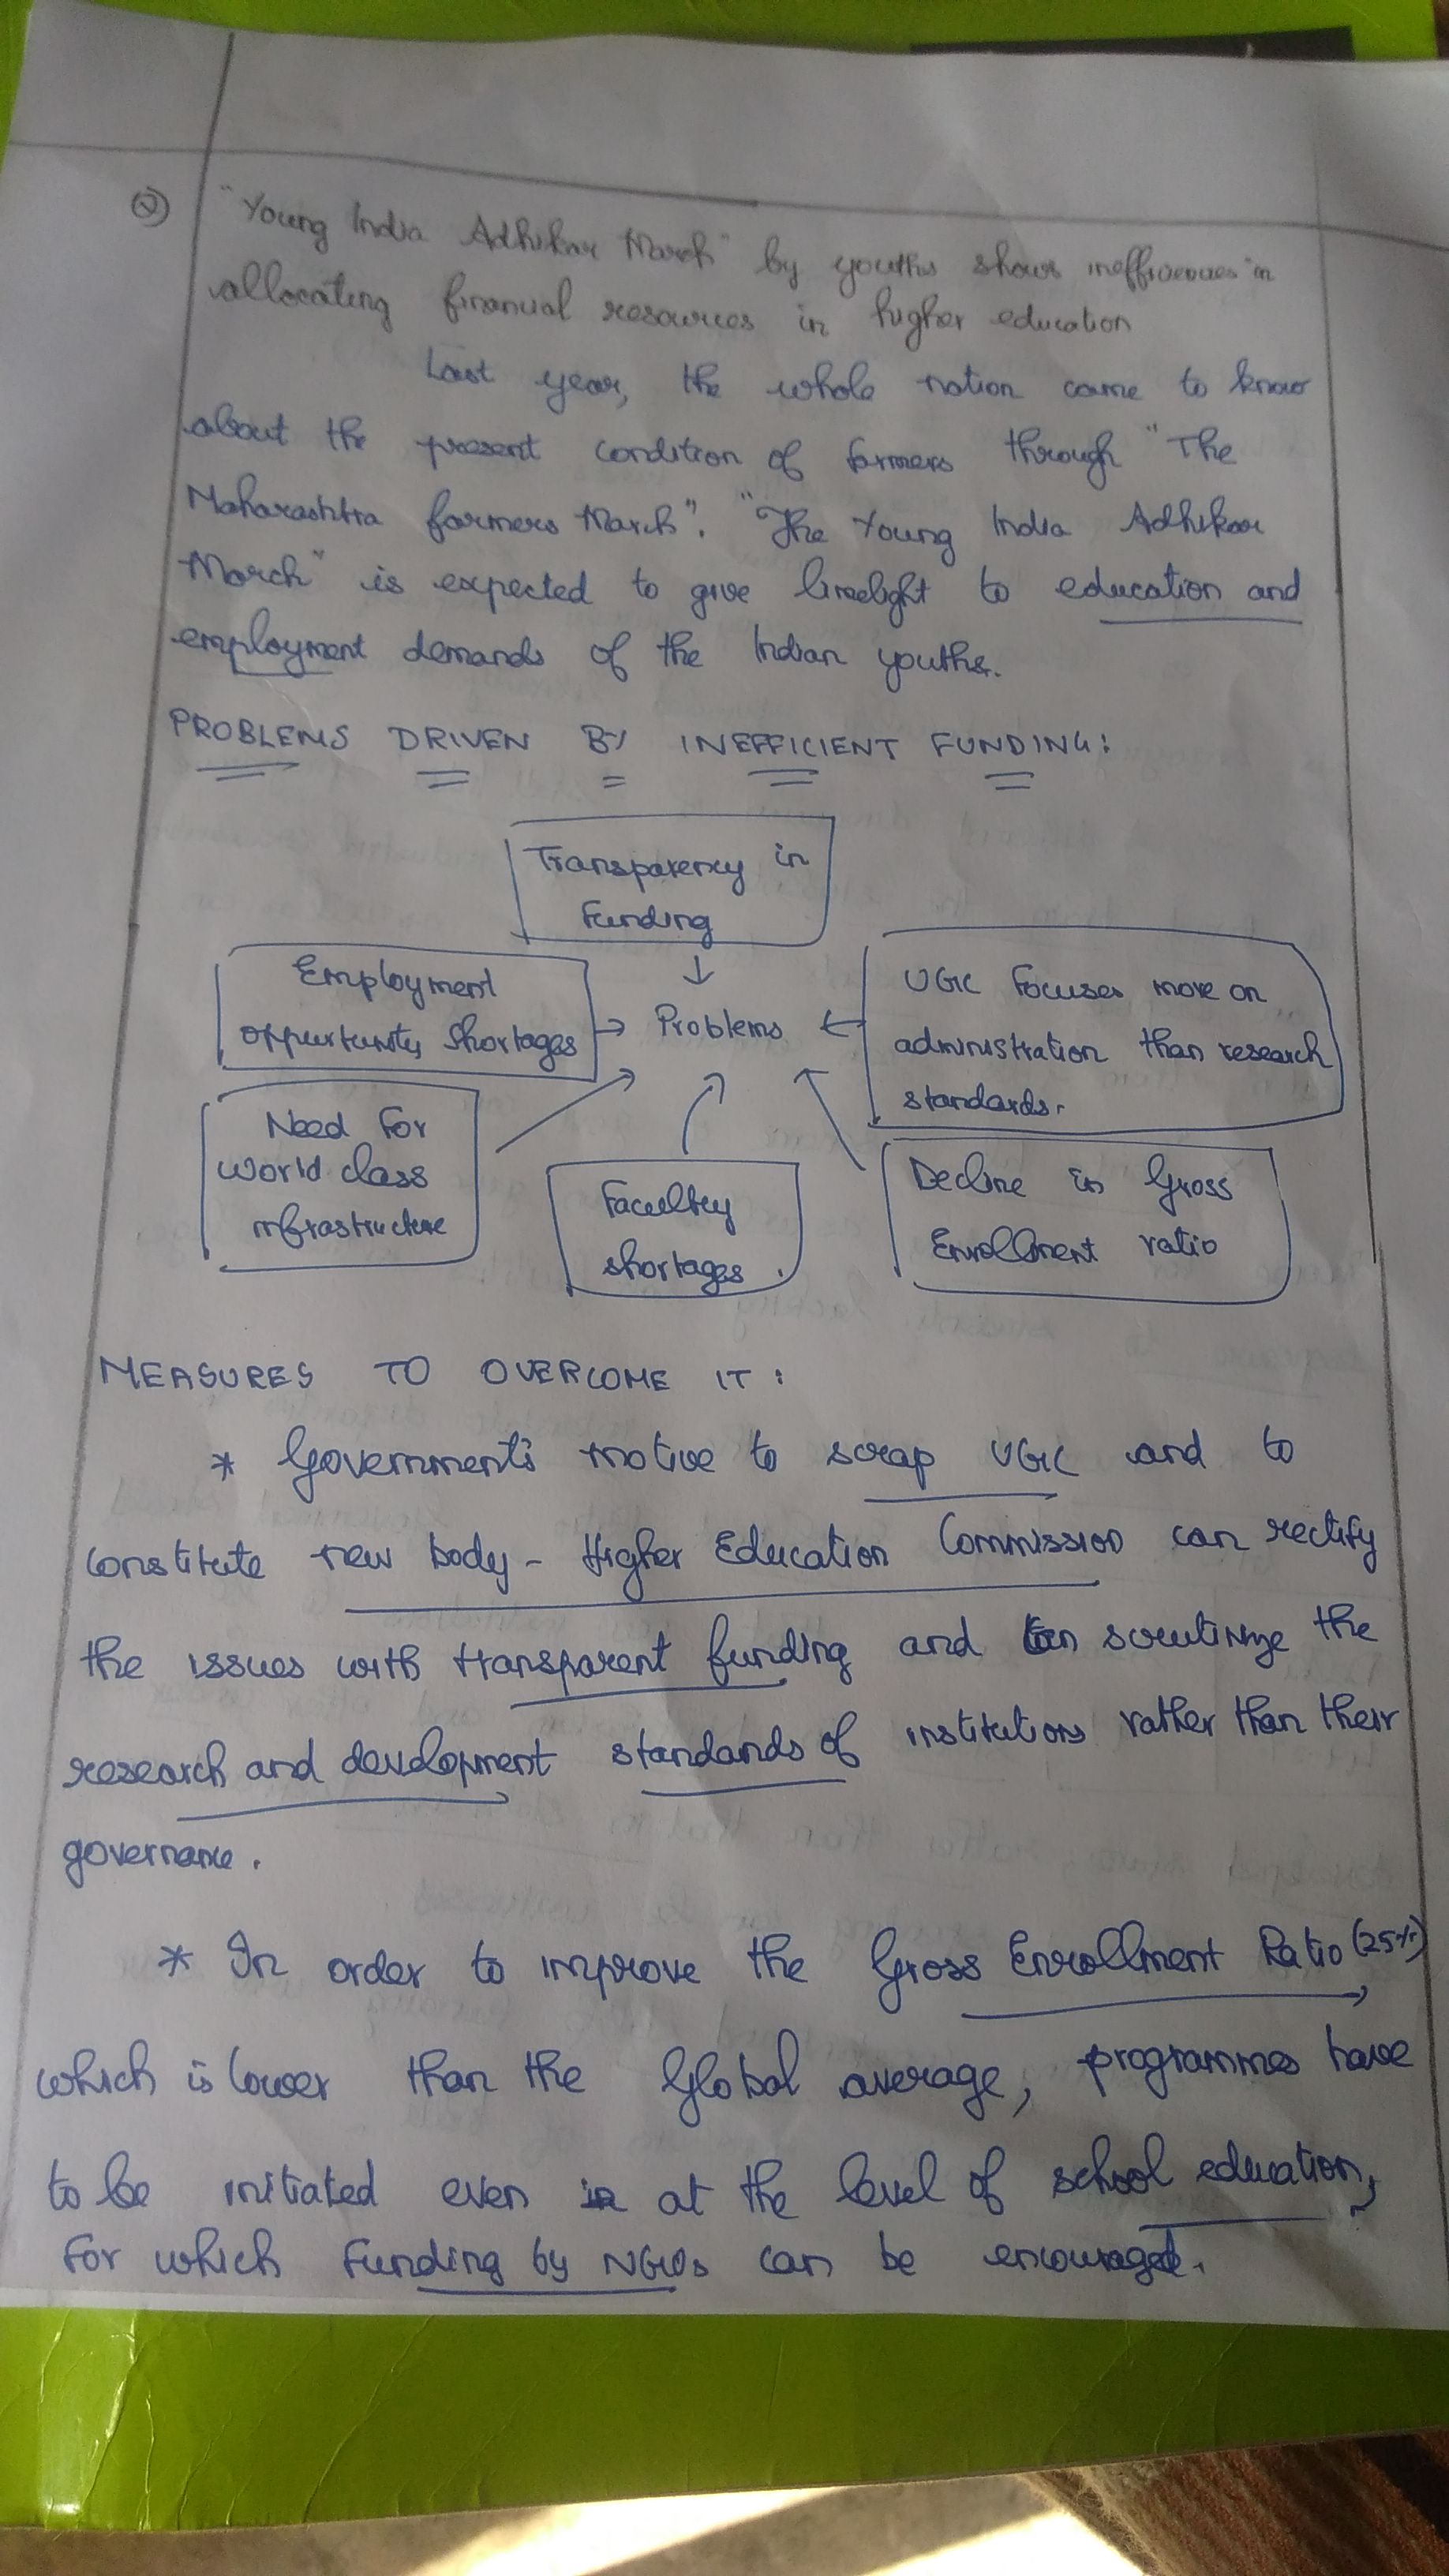 Q) "Young India Adhikar March" by youths shows inefficiencies in
allocating financial resources in higher education
Last year, the whole nation came to know
about the present condition of farmers through "The
Maharashtra farmers March". "The Young India Adhikar
March" is expected to give limelight to education and
employment demands of the Indian youths.
PROBLEMS DRIVEN BY INEFFICIENT FUNDING:
Transparency in
Funding
Employment
opportunity shortages
Problems
UGC Focuses more on
administration than research
standards.
Need For
World class
infrastructure
Faculty
shortages.
Decline in Gross
Enrollment ratio
MEASURES TO OVERCOME IT:
* Government's motive to scrap UGC and to
constitute new body - Higher Education Commission can rectify
the issues with transparent funding and can scrutinize the
research and development standards of institutions rather than their
governance.
* In order to improve the Gross Enrollment Ratio (25%)
which is lower than the Global average, programmes have
to be initiated even at the level of school education,
for which funding by NGOs can be encouraged.